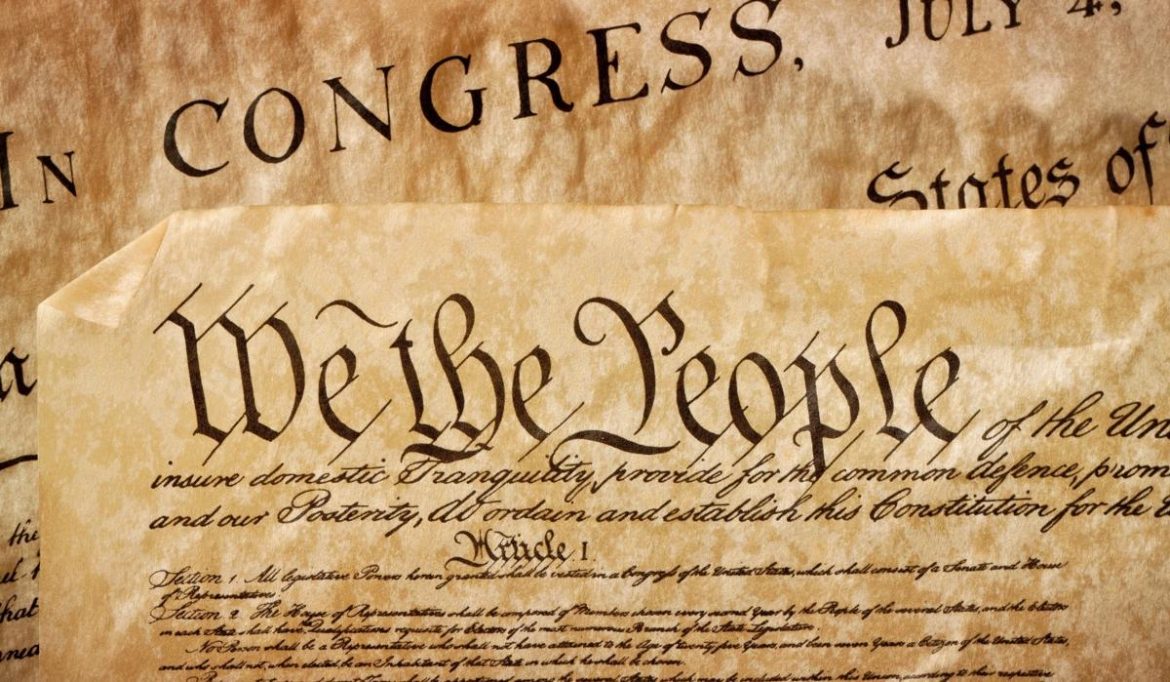 In CONGRESS, July 4,
States of
We the People of the Un
insure domestic Tranquility, provide for the common defence, prom
and our Posterity, do ordain and establish this Constitution for the
Article. I.
Section. 1. All legislative Powers herein granted shall be vested in a Congress of the United States, which shall consist of a Senate and House
of Representatives.
Section. 2. The House of Representatives shall be composed of Members chosen every second Year by the People of the several States, and the Electors
in each State shall have the Qualifications requisite for Electors of the most numerous Branch of the State Legislature.
No Person shall be a Representative who shall not have attained to the Age of twenty five Years, and been seven Years a Citizen of the United States,
and who shall not, when elected, be an Inhabitant of that State in which he shall be chosen.
the
that